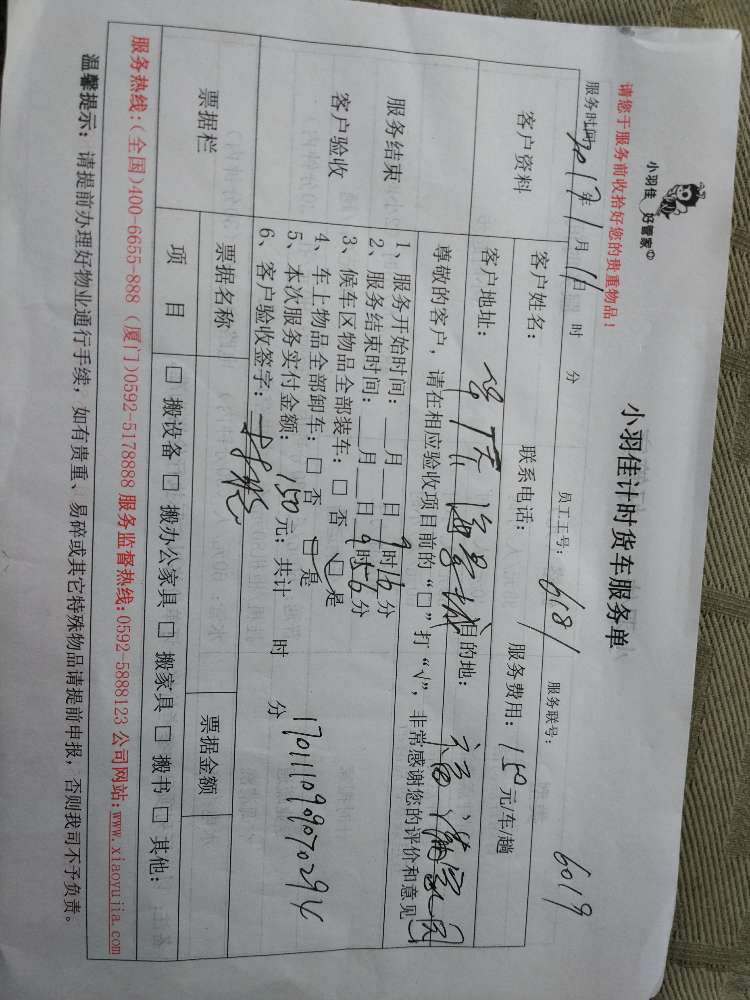 小羽佳 好管家
小羽佳计时货车服务单
请您于服务前收拾好您的贵重物品！
服务时间：2017年1月11日 时 分 员工工号：6181 服务联号：6019
客户资料
客户姓名： 联系电话： 服务费用：150元/车/趟
客户地址： 海景城 目的地： 福满家园
服务结束
客户验收
尊敬的客户，请在相应验收项目前的“□”打“√”，非常感谢您的评价和意见
1、服务开始时间：__月__日9时16分
2、服务结束时间：__月__日9时56分
3、候车区物品全部装车：□ 否 □ 是
4、车上物品全部卸车：□ 否 □ 是
5、本次服务实付金额：150元；共计 时 分
6、客户验收签字：
票据栏
票据名称 票据金额
项 目 □ 搬设备 □ 搬办公家具 □ 搬家具 □ 搬书 □ 其他：
服务热线：(全国)400-6655-888 (厦门)0592-5178888 服务监督热线:0592-5888123 公司网站:www.xiaoyujia.com
温馨提示：请提前办理好物业通行手续，如有贵重、易碎或其它特殊物品请提前申报，否则我司不予负责。